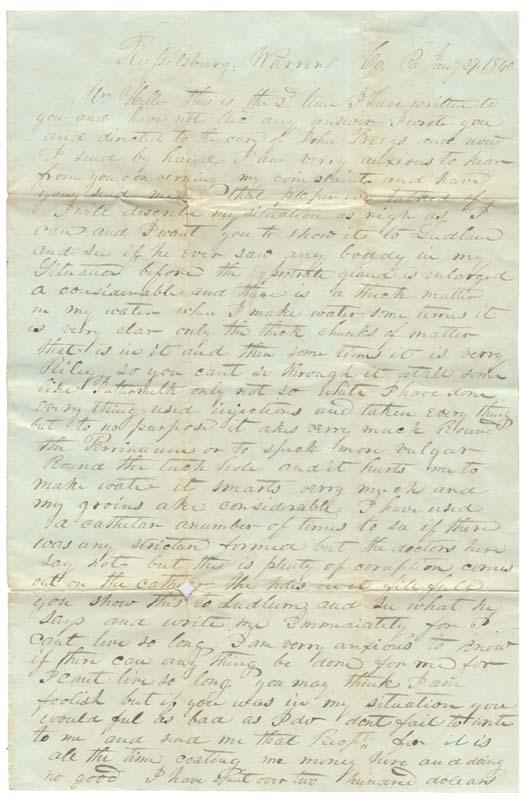 Russelsburg, Warren Co, Pa Jany 27, 1840
Mr Hiller this is the 2d line I have written to
you and have not any answer I wrote you
and directed to the care of John Beegs and now
I send by hand I am verry anxious to hear
from you concerning my complaint and have
you send me that we talked of
I will describe my situation as nigh as I
can and I want you to show it to Ludlum
and see if he ever saw any boddy in my
Situation before the prostrate gland is enlarged
a considerable and there is a thick matter
in my water when I make water some times it
is very clar only the thick chunks of matter
that is in it and then some times it is verry
Riley so you cant se through it atall some
like Buttermilk only not so white I have done
every thing used injections and taken every thing
but to no purpose it akes verry much Round
the Perrinaum or to speck more vulgar
Round the hole and it hurts me to
make water it smarts verry much and
my groins ake considerable I have used
a cathetar anumber of times to se if there
was any stricture formed but the doctors here
say not but the is plenty of coruption comes
out on the the holes in it fill full
you show this to Ludlum and se what he
says and write me Emmadiatly for I
cant live so long I am verry anxious to know
if there can any thing be done for me for
I cant live so long you may think I am
foolish but if you was in my situation you
would ful as bad as I do dont fail to write
to me and send me that for it is
all the time costing me money here and doing
no good I have spent over two hundred dollars